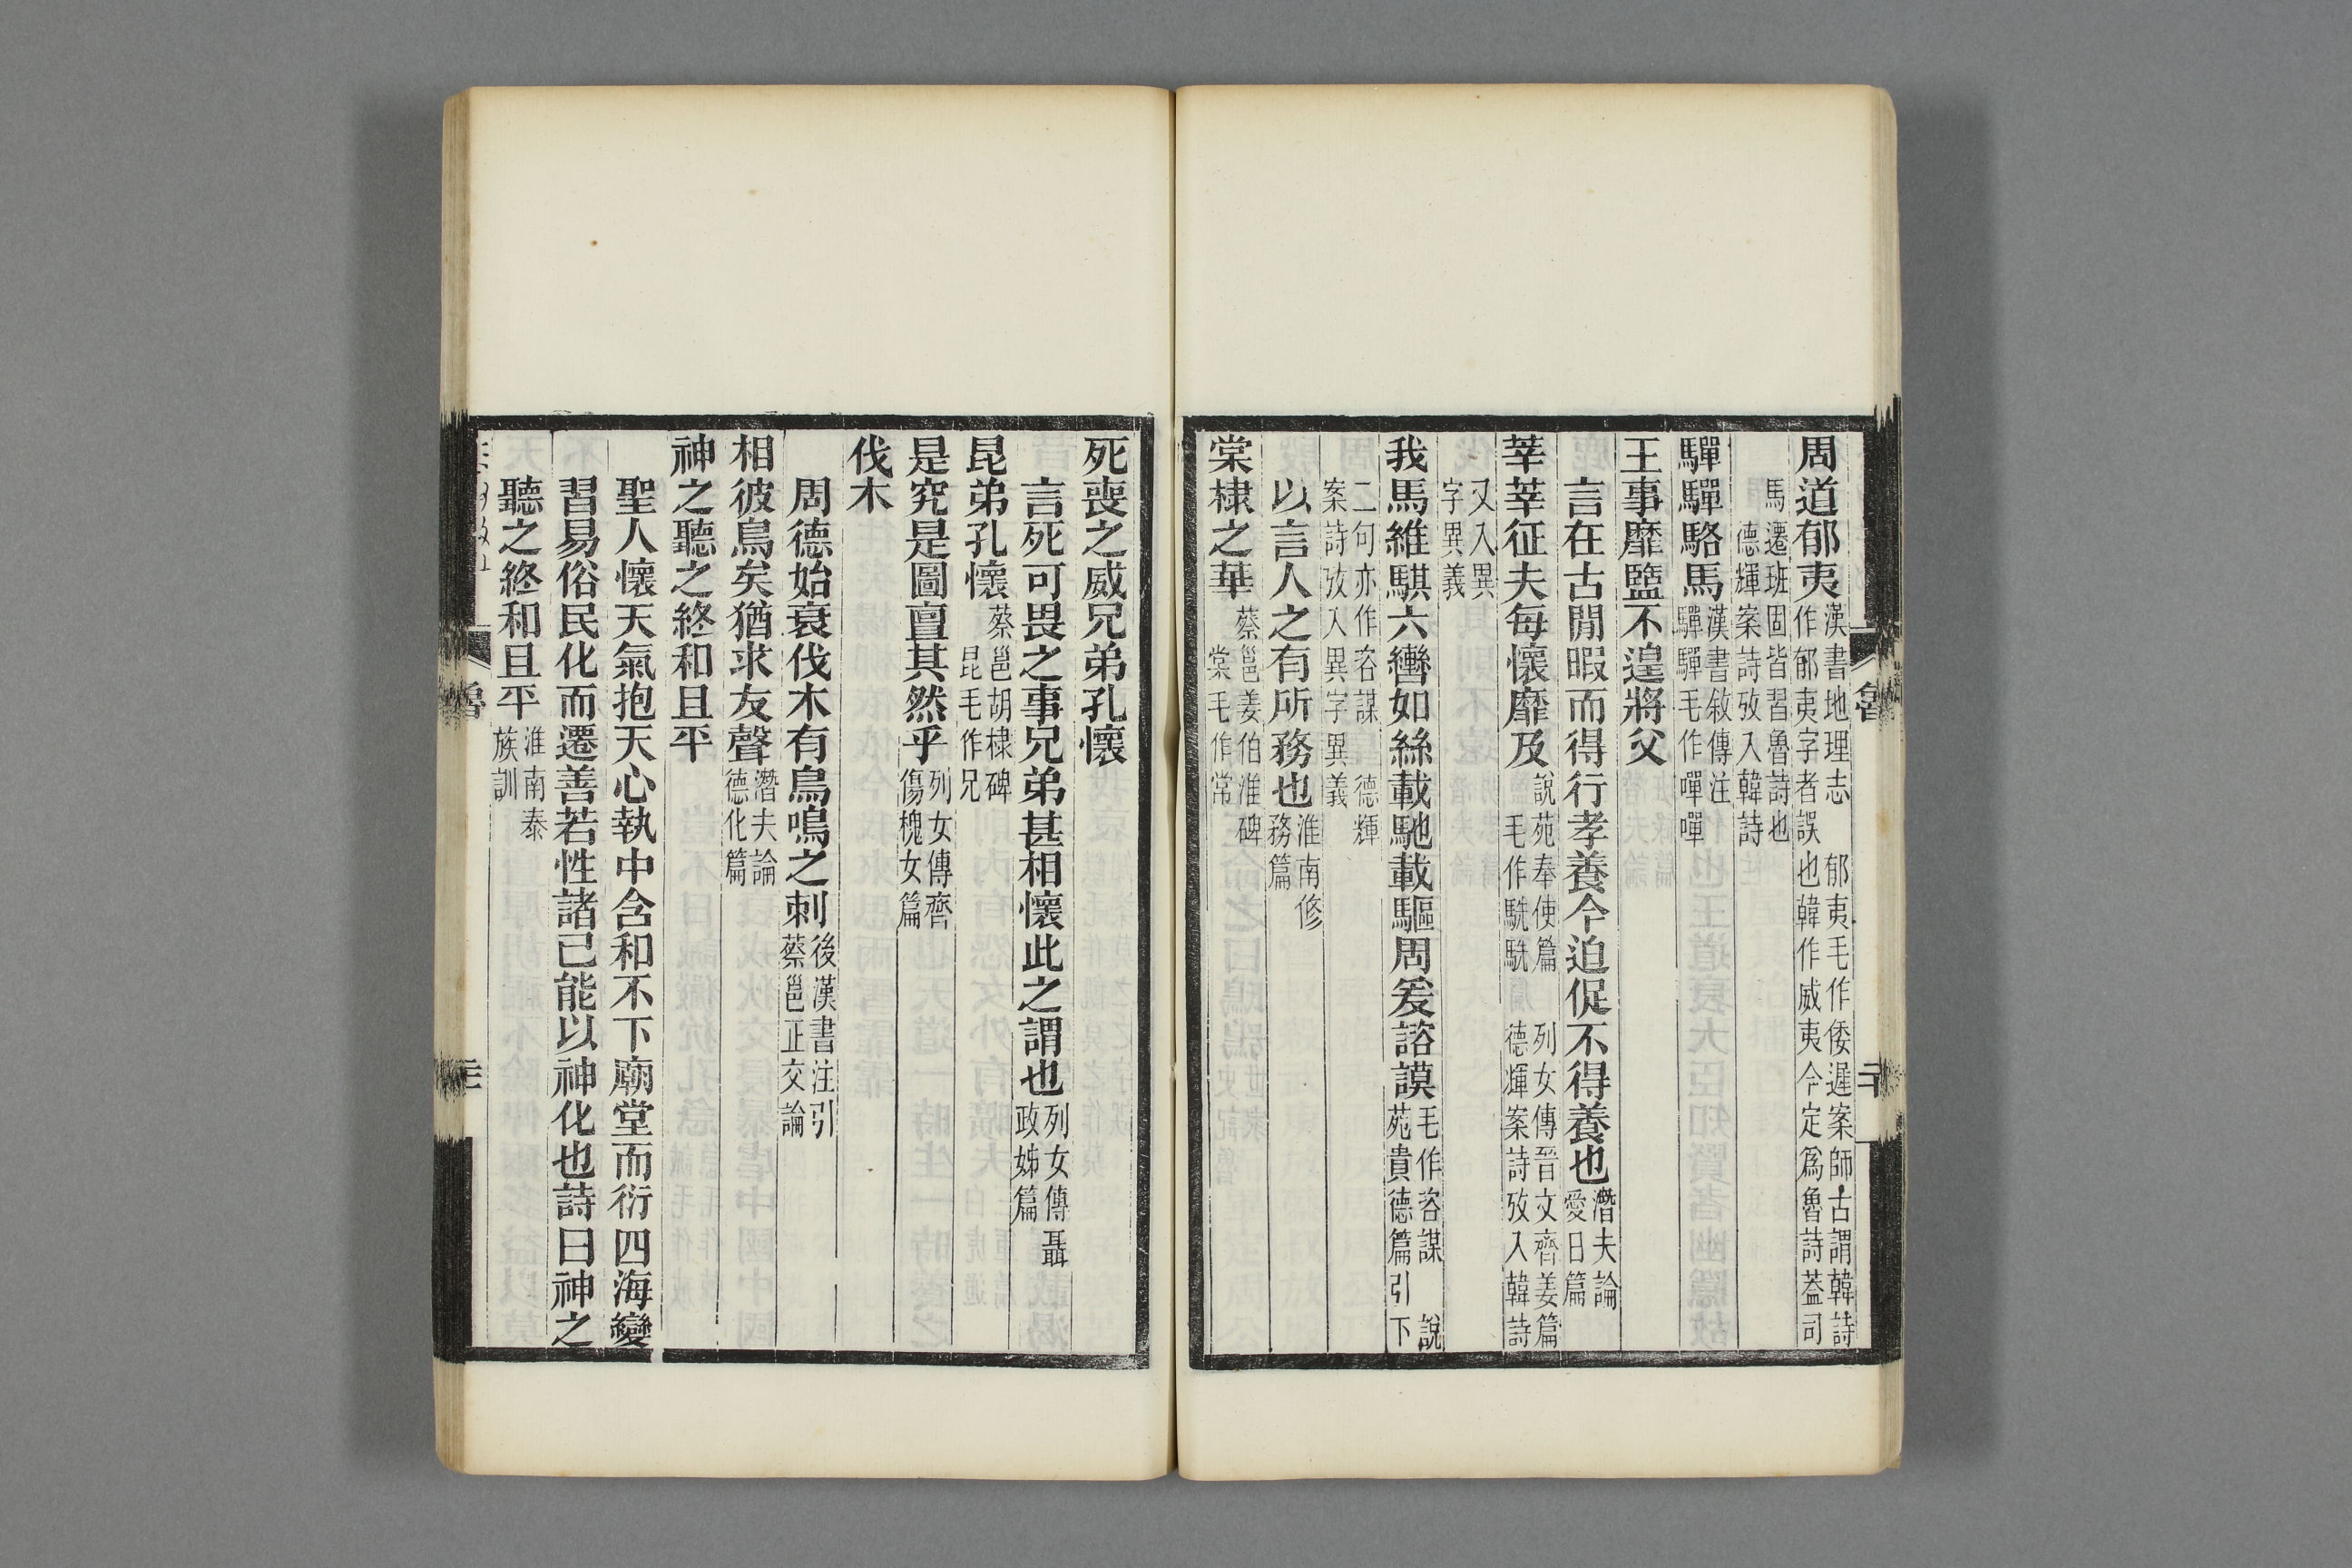 周道郁夷漢書地理志　郁夷毛作倭遲案師古謂韓詩作郁夷字者誤也韓作威夷今定爲魯詩葢司
馬遷班固皆習魯詩也德輝案詩攷入韓詩
驒驒駱馬漢書敘傳注驒驒毛作嘽嘽
王事靡盬不遑將父
言在古閒暇而得行孝養今迫促不得養也潛夫論愛日篇
莘莘征夫每懷靡及說苑奉使篇　列女傳晉文齊姜篇毛作駪駪　德輝案詩攷入韓詩
又入異字異義
我馬維騏六轡如絲載馳載驅周爰諮謨毛作咨謀　說苑貴德篇引下
二句亦作咨謀　德輝案詩攷入異字異義
以言人之有所務也淮南修務篇
棠棣之華蔡邕姜伯淮碑棠毛作常
魯
二十
死喪之威兄弟孔懷
言死可畏之事兄弟甚相懷此之謂也列女傳聶政姊篇
昆弟孔懷蔡邕胡棣碑昆毛作兄
是究是圖亶其然乎列女傳齊傷槐女篇
伐木
周德始衰伐木有鳥鳴之刺後漢書注引蔡邕正交論
相彼鳥矣猶求友聲潛夫論德化篇
神之聽之終和且平
聖人懷天氣抱天心執中含和不下廟堂而衍四海變
習易俗民化而遷善若性諸己能以神化也詩曰神之
聽之終和且平淮南泰族訓
魯